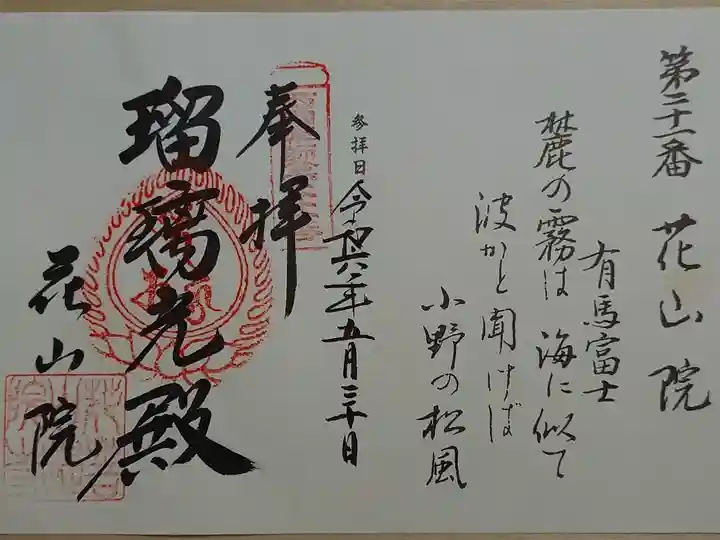 第二十一番 花山院
有馬富士
麓の霧は 海に似て
波かと聞けば
小野の松風
参拝日 令和六年五月三十日
奉拝
瑠璃光殿
花山院